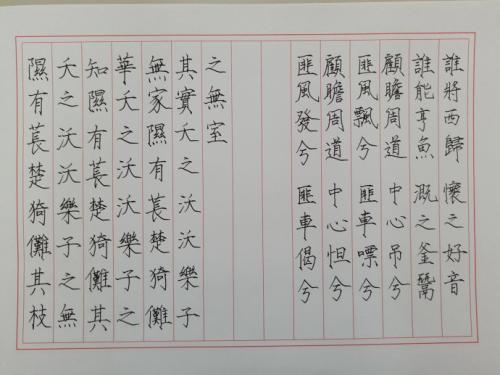 隰有萇楚猗儺其枝
夭之沃沃樂子之無
知隰有萇楚猗儺其
華夭之沃沃樂子之
無家隰有萇楚猗儺
其實夭之沃沃樂子
之無室
匪風發兮 匪車偈兮
顧瞻周道 中心怛兮
匪風飄兮 匪車嘌兮
顧瞻周道 中心吊兮
誰能亨魚 溉之釜鬵
誰將西歸 懷之好音